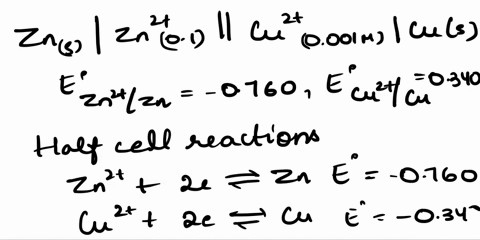 Zn(s) | Zn²⁺(0.1) || Cu²⁺(0.001M) | Cu(s)
E°Zn²⁺/Zn = -0.760, E°Cu²⁺/Cu = 0.340
Half cell reactions
Zn²⁺ + 2e ⇌ Zn E° = -0.760
Cu²⁺ + 2e ⇌ Cu E° = -0.34